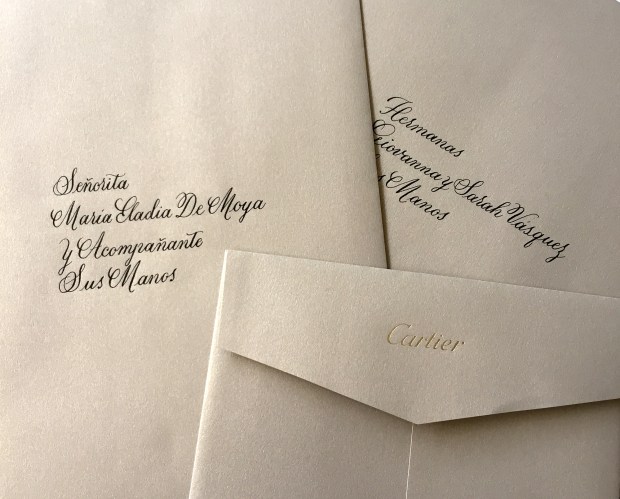 Señorita
Maria Eladia De Moya
Y Acompañante
Sus Manos
Hermanas
Giovanna y Sarah Vásquez
Manos
Cartier